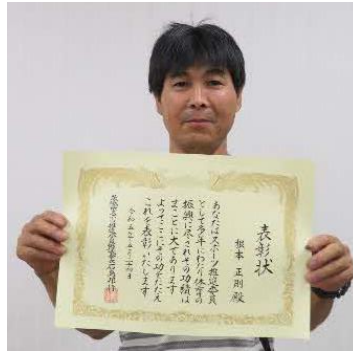 表彰状
根本 正則 殿
あなたはスポーツ推進委員
として多年にわたり体育の
振興に尽されその功績は
まことに大であります
よってここにその功をたたえ
これを表彰いたします
令和五年